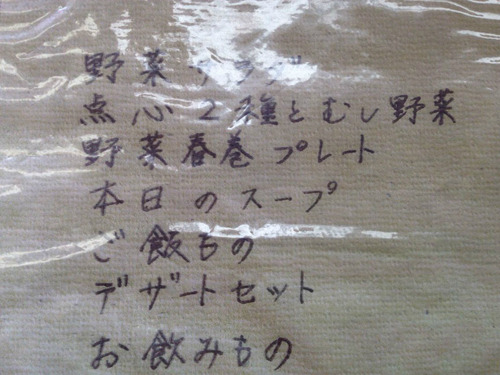 野菜サラダ
点心2種とむし野菜
野菜春巻プレート
本日のスープ
ご飯もの
デザートセット
お飲みもの